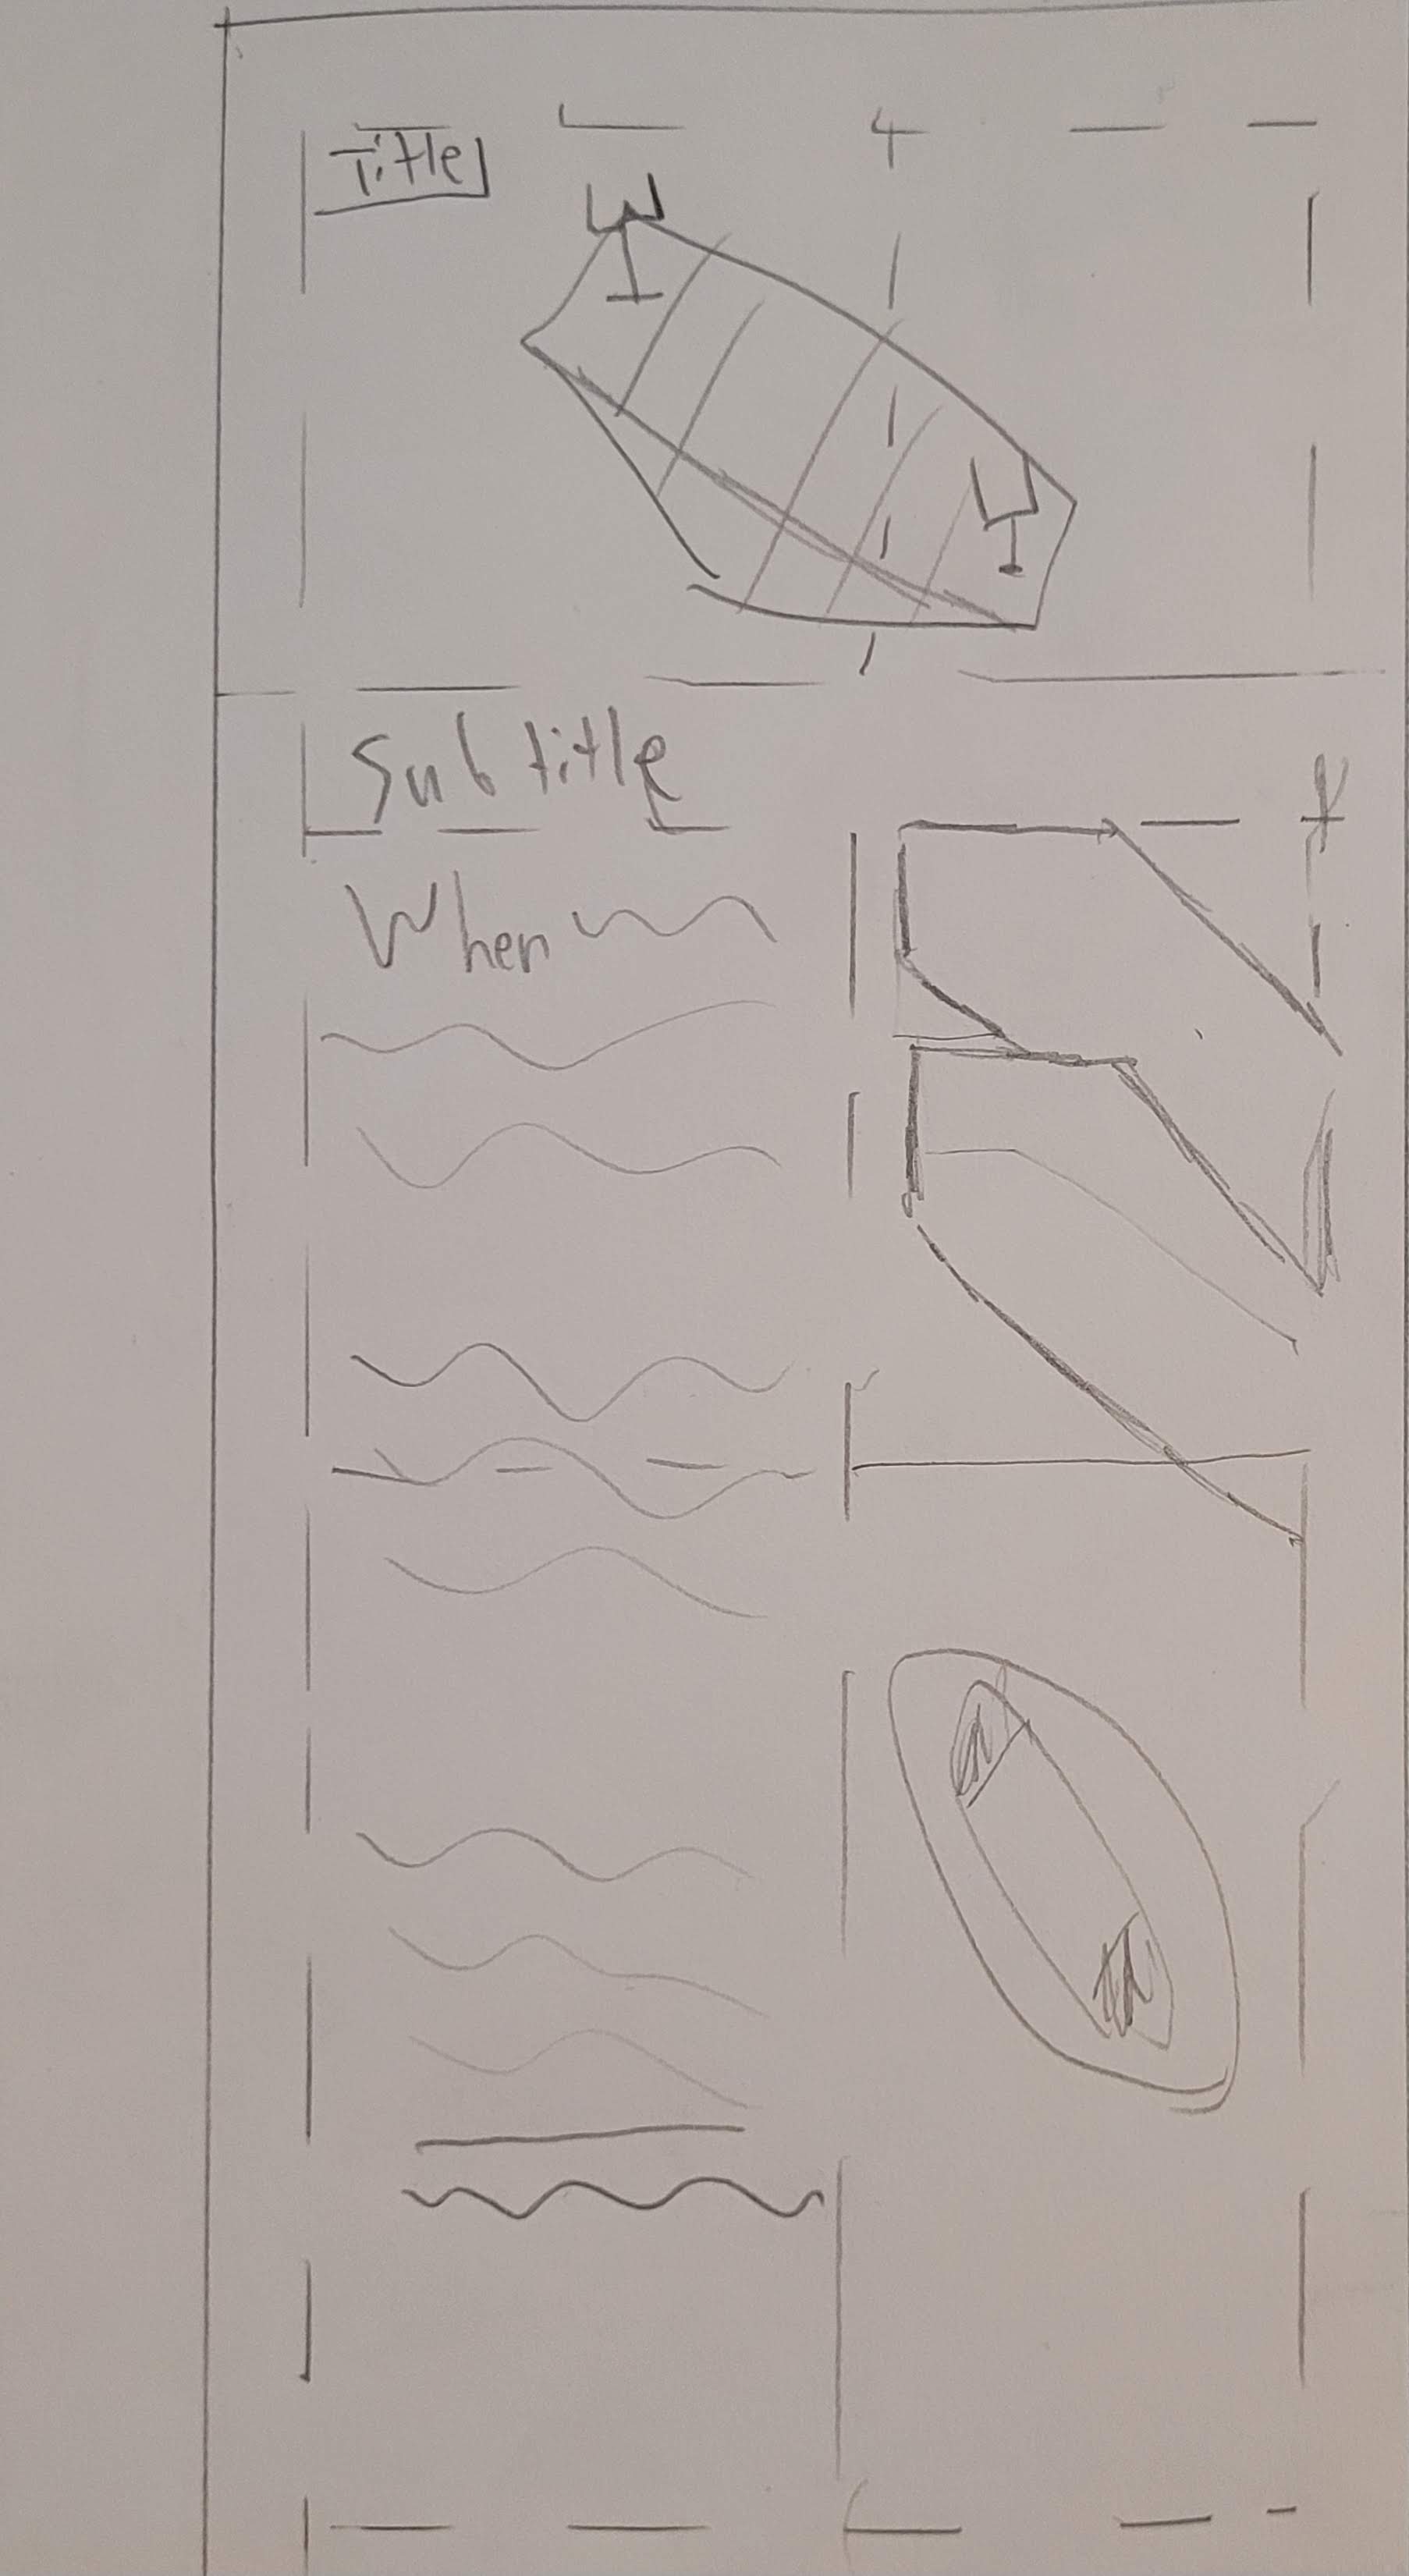 Title
Subtitle
When